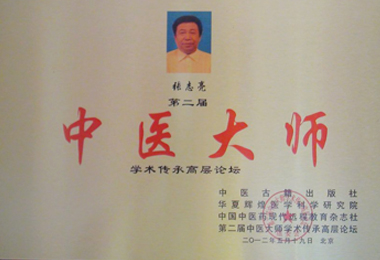 张志亮
第二届
中医大师
学术传承高层论坛
中医古籍出版社
华夏辉煌医学科学研究院
中国中医药现代远程教育杂志社
第二届中医大师学术传承高层论坛
二〇一二年五月十九日 北京